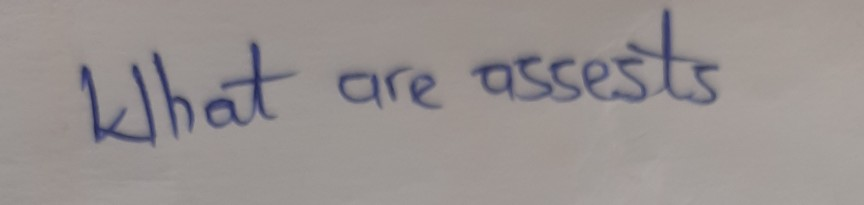 What are assests